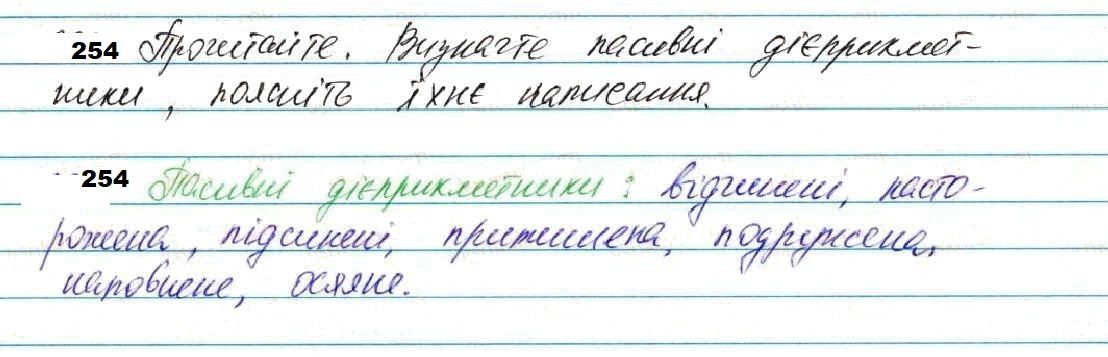 254 Прочитайте. Визначте пасивні дієприкмет-
ники, поясніть їхнє написання.
254 Пасивні дієприкметники: відчинені, насто-
рожена, підсинені, притишена, подружена,
наповнене, осяяне.